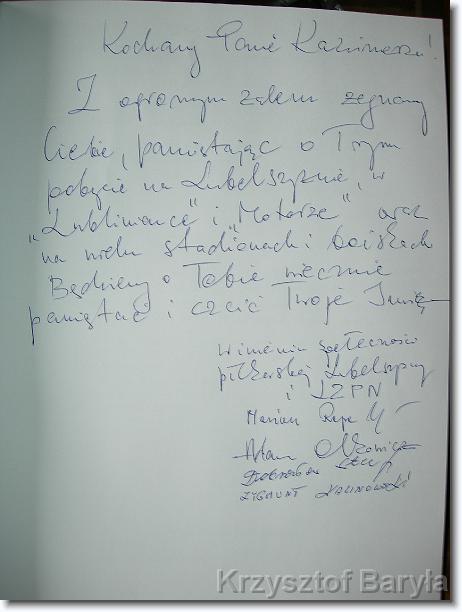 Kochany Panie Kazimierzu!
Z ogromnym żalem żegnamy
Ciebie, pamiętając o Twym
pobycie na Lubelszczyźnie, w
„Lubliniance" i „Motorze" oraz
na wielu stadionach i boiskach
Będziemy o Tobie wiecznie
pamiętać i czcić Twoje Imię
w imieniu społeczności
piłkarskiej Lubelszczyzny
i LZPN
Marian Rapa
Adam
ZYGMUNT KALINOWSKI
Krzysztof Baryła